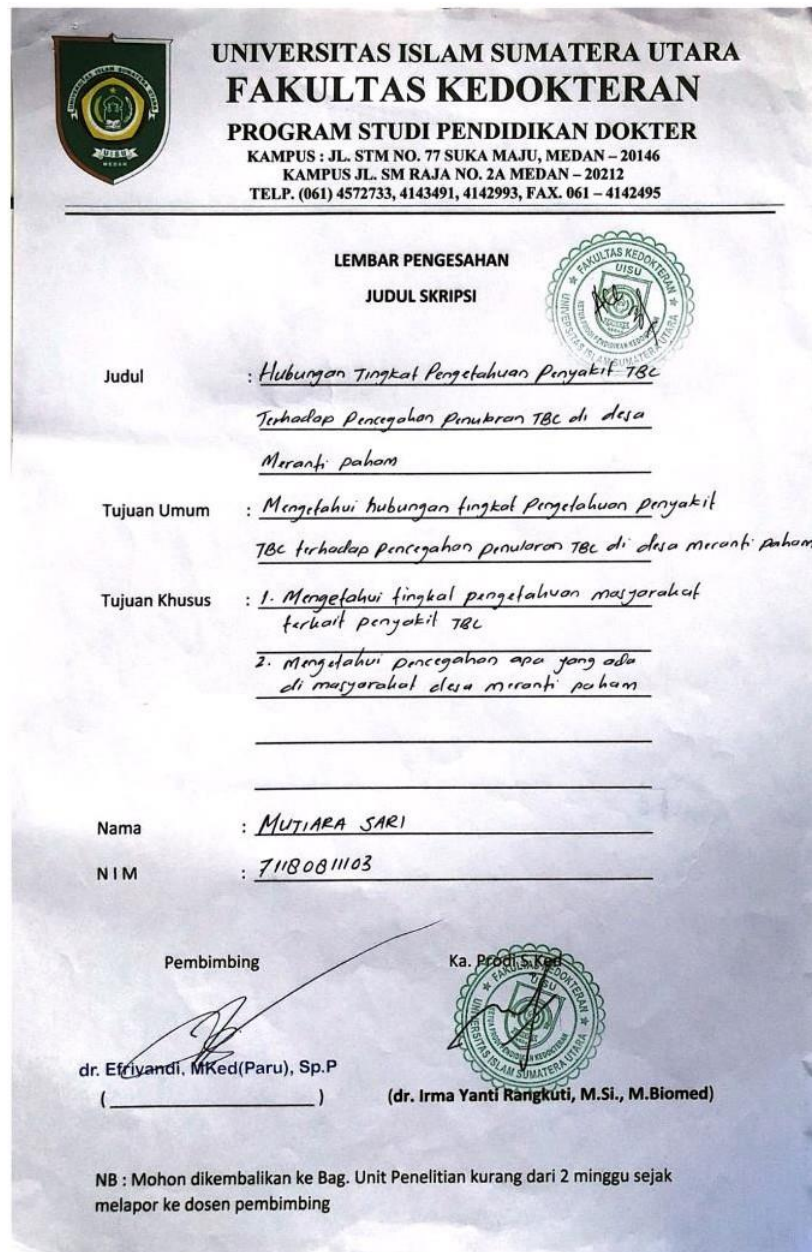 UNIVERSITAS ISLAM SUMATERA UTARA
FAKULTAS KEDOKTERAN
PROGRAM STUDI PENDIDIKAN DOKTER
KAMPUS : JL. STM NO. 77 SUKA MAJU, MEDAN – 20146
KAMPUS JL. SM RAJA NO. 2A MEDAN – 20212
TELP. (061) 4572733, 4143491, 4142993, FAX. 061 – 4142495
UNIVERSITAS ISLAM SUMATERA UTARA
UISU
MEDAN
LEMBAR PENGESAHAN
JUDUL SKRIPSI
FAKULTAS KEDOKTERAN
UISU
UNIVERSITAS ISLAM SUMATERA UTARA
KETUA PRODI PENDIDIKAN KEDOKTERAN
Judul : Hubungan Tingkat Pengetahuan Penyakit TBC
Terhadap Pencegahan Penularan TBC di desa
Meranti paham
Tujuan Umum : Mengetahui hubungan tingkat Pengetahuan penyakit
TBC terhadap pencegahan penularan TBC di desa meranti paham
Tujuan Khusus : 1. Mengetahui tingkat pengetahuan masyarakat
terkait penyakit TBC
2. Mengetahui pencegahan apa yang ada
di masyarakat desa meranti paham
Nama : MUTIARA SARI
NIM : 71180811103
Pembimbing Ka. Prodi S.Ked
FAKULTAS KEDOKTERAN
UISU
UNIVERSITAS ISLAM SUMATERA UTARA
KETUA PRODI PENDIDIKAN KEDOKTERAN
dr. Efriyandi, MKed(Paru), Sp.P
(____________________) (dr. Irma Yanti Rangkuti, M.Si., M.Biomed)
NB : Mohon dikembalikan ke Bag. Unit Penelitian kurang dari 2 minggu sejak
melapor ke dosen pembimbing